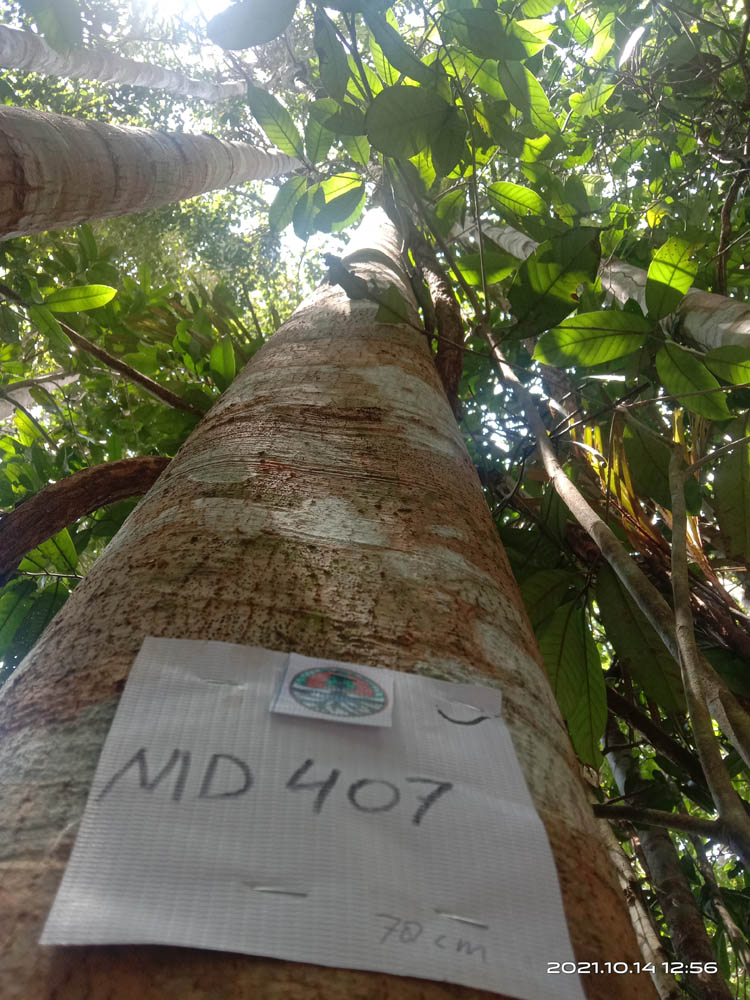 MD 407
70 cm
2021.10.14 12:56